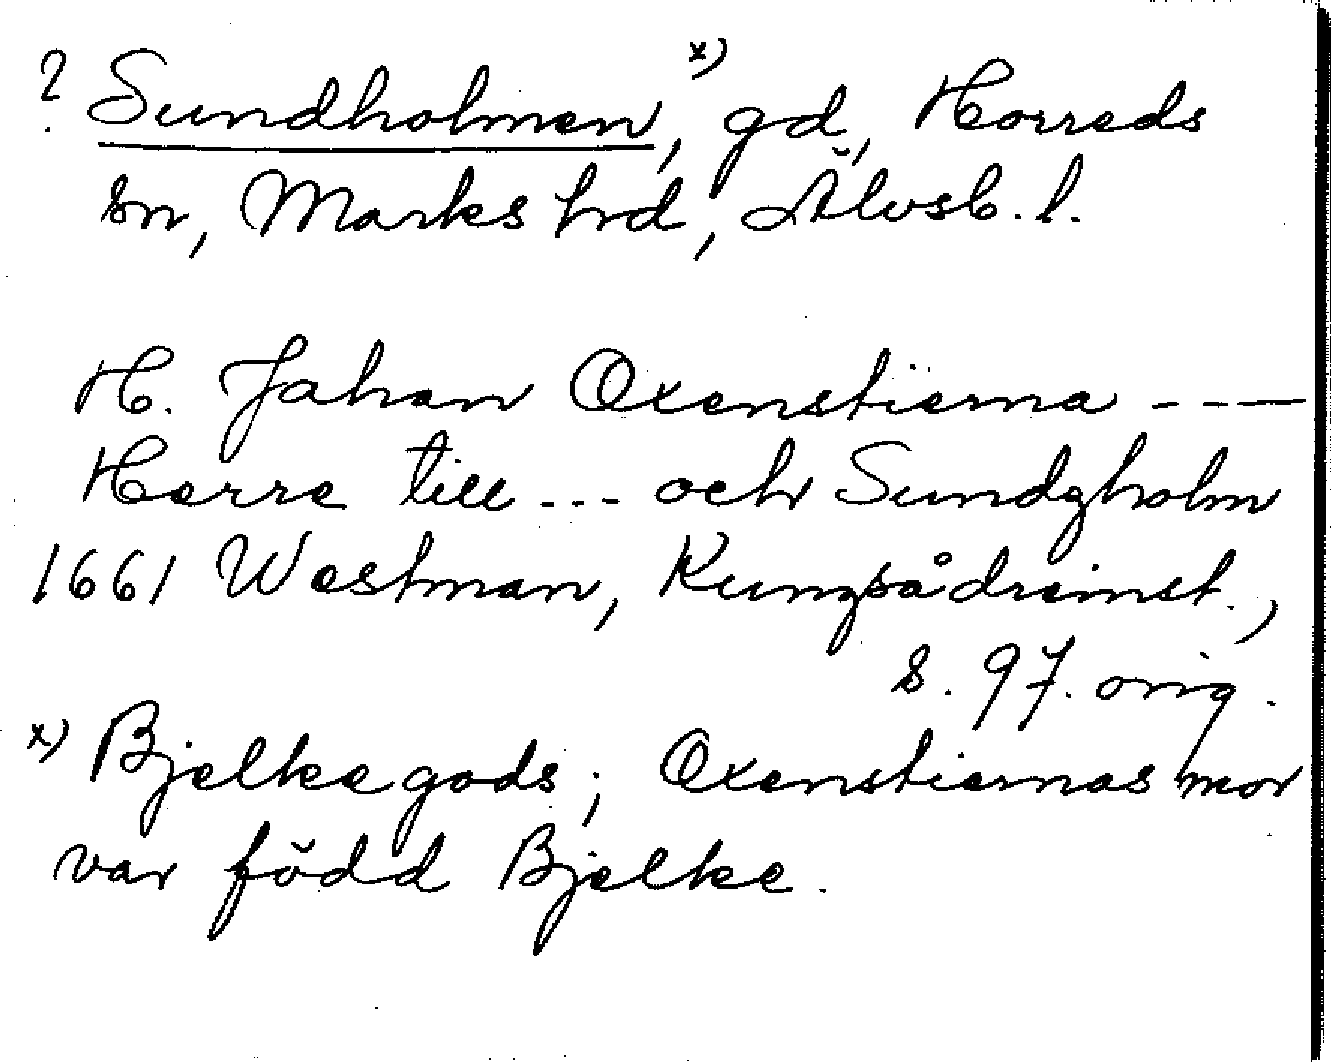 ? Sundholmen,ˣ⁾ gd, Horreds
sn, Marks hrd, Älvsb. l.
H. Johan Oxenstierna ----
Herre till --- och Sundzholm
1661 Westman, Kungsådreinst.,
s. 97. orig.
x) Bjelkegods; Oxenstiernas mor
var född Bjelke.